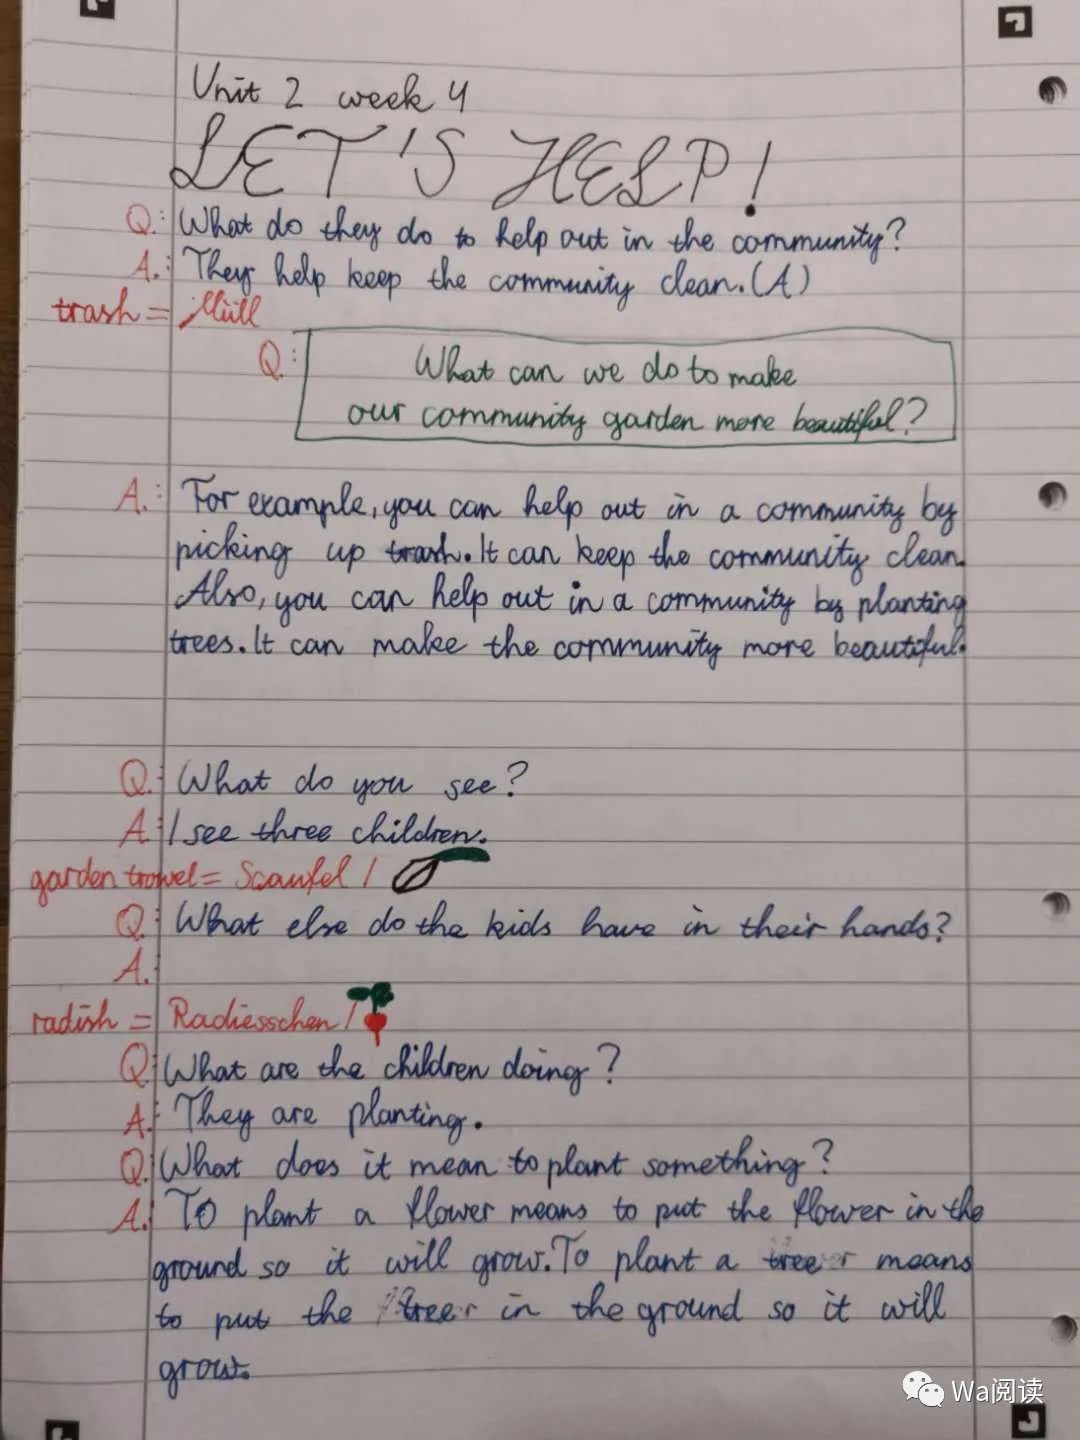 Unit 2 week 4
LET'S HELP!
Q: What do they do to help out in the community?
A.: They help keep the community clean. (A)
trash = Müll
Q: What can we do to make
our community garden more beautiful?
A.: For example, you can help out in a community by
picking up trash. It can keep the community clean.
Also, you can help out in a community by planting
trees. It can make the community more beautiful.
Q: What do you see?
A: I see three children.
garden trowel = Scaufel /
Q: What else do the kids have in their hands?
A.:
radish = Radiesschen /
Q: What are the children doing?
A: They are planting.
Q: What does it mean to plant something?
A.: To plant a flower means to put the flower in the
ground so it will grow. To plant a tree means
to put the tree in the ground so it will
grow.
Wa阅读